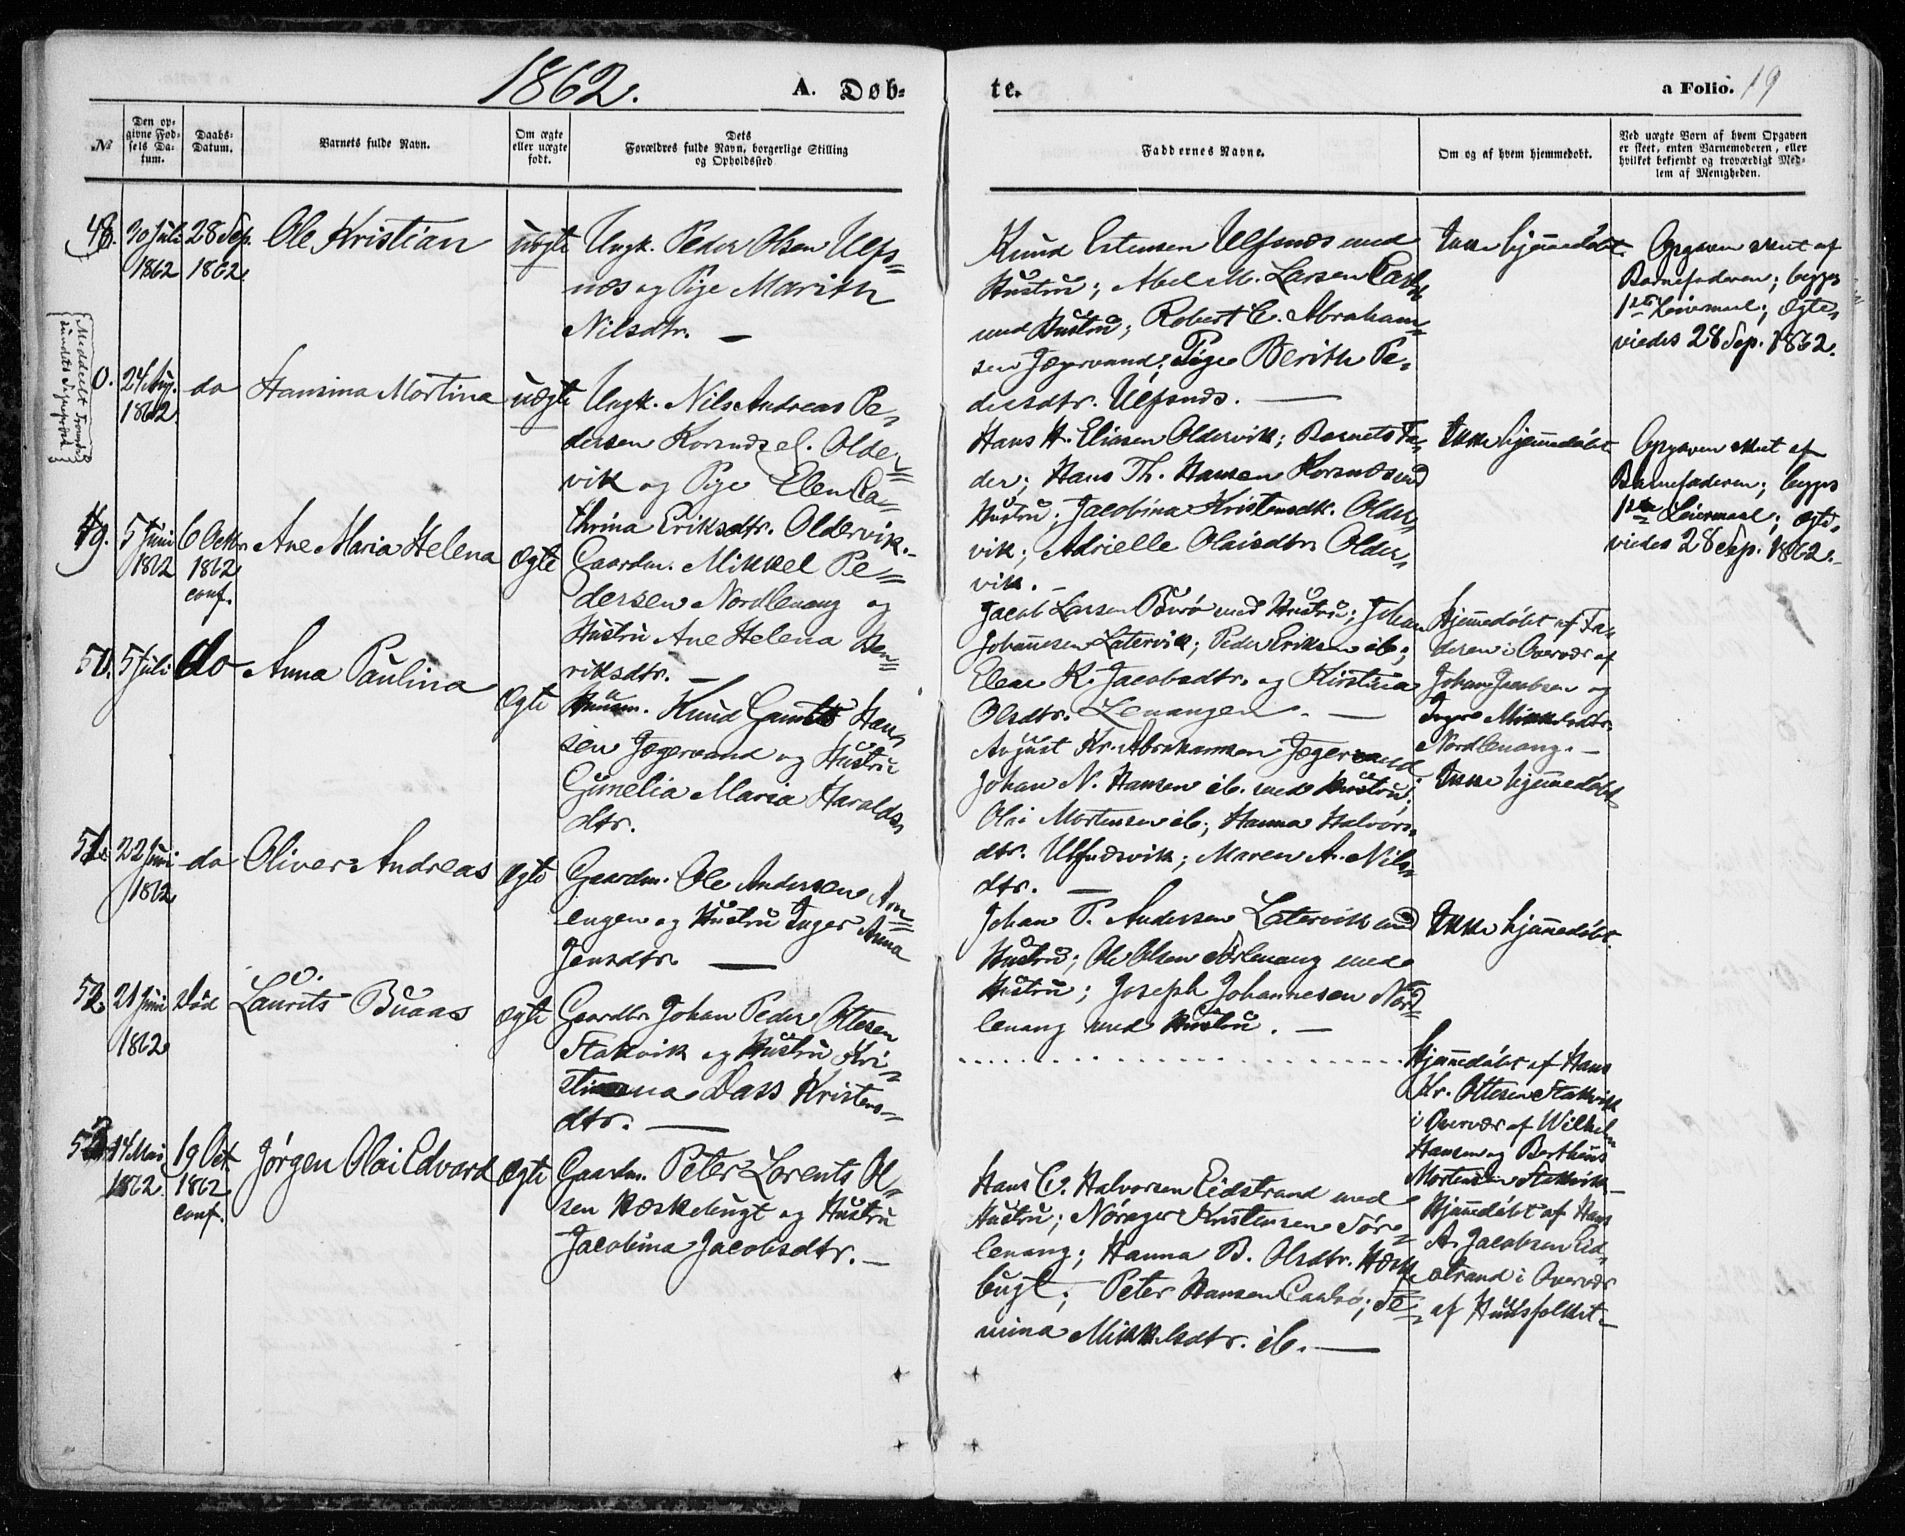 1862.
A. Døb-
te.
a Folio. 19
№
Den op-
givne Fød-
sels Da-
tum.
Daabs-
Datum.
Barnets fulde Navn.
Om ægte
eller uægte
født.
Dets
Forældres fulde Navn, borgerlige Stilling
og Opholdssted
Faddernes Navne.
Om og af hvem hjemmedøbt.
Ved uægte Børn af hvem Opgaven
er skeet, enten Barnemoderen, eller
hvilket bekjendt og troværdigt Med-
lem af Menigheden.
48.
30 Juli
1862
28 Sep.
1862
Ole Kristian
uægte
Ungk. Peder Olsen Ulfs-
næs og Pige Marith
Nilsdtr. —
Knud Estensen Ulfsnæs med
Hustru; Abel M. Larsen
med Hustru; Robert E. Abraham-
sen Jægervand; Pige Berith Pe-
dersdtr. Ulfsnæs. —
Ikke hjemmedøbt
Opgaven skeet af
Barnefaderen; begges
1ste Leiermaal; ægte-
viedes 28 Sep. 1862.
0.
24 Aug.
1862
do
Hansina Mortina
uægte
Ungk. Nils Andreas Pe-
dersen Korsnæs el. Older-
vik og Pige Elen Ca-
thrina Eriksdtr. Oldervik.
Hans H. Eliasen Oldervik; Barnets Fa-
der; Hans Th. Hansen Korsnæs md
Hustru; Jacobina Kristensdtr. Older-
vik; Adrielle Olaisdtr. Older-
vik. —
Ikke hjemmedøbt
Opgaven skeet af
Barnefaderen; begges
1ste Leiermaal; ægte-
viedes 28 Sep. 1862.
49.
5 Juni
1862
6 Octbr.
1862
conf.
Ane Maria Helena
ægte
Gaardm. Mikkel Pe-
dersen Nordlenang og
Hustru Ane Helena Hen-
riksdtr. —
Jacob Larsen med Hustru; Johan
Johannesen Latervik; Peder Eriksen ib;
Elen K. Jacobsdtr. og Kirstina
Olsdtr. Lenangen. —
Hjemmedøbt af Fa-
deren i Overvær af
Johan Jacobsen og
Inger Mikkelsdtr.
Nordlenang. —
50.
5 Juli
do
Anna Paulina
ægte
Huusm. Knud Gamst Han-
sen Jægervand og Hustru
Gunelia Maria Haralds-
dtr.
August Kr. Abrahamsen Jægervand
Johan N. Hansen ib. med Hustru;
Olai Mortensen ib; Hanna Halvors-
dtr. Ulfsnæsvik; Maren A. Nils-
dtr. —
Ikke hjemmedøbt
51.
22 Juni
1862
do
Oliver Andreas
ægte
Gaardm. Ole Andersen
engen og Hustru Inger Anna
Jensdtr. —
Johan P. Andersen Latervik med
Hustru; Ole Olsen Sørlenang med
Hustru; Joseph Johannesen Nord-
lenang med Hustru. —
Ikke hjemmedøbt.
52.
21 Juni
1862
død
Laurits Buaas
ægte
Gaardbr. Johan Peder Ottesen
Stakvik og Hustru Kri-
stianna Dass Kristens-
dtr. —
Hjemmedøbt af Hans
Kr. Ottesen Stakvik
i Overvær af Wilhelm
Hansen og Bertheus
Mortensen Stakvik —
53.
14 Mai
1862
19 Oct
1862
conf.
Jørgen Olai Edvard
ægte
Gaardm. Peter Lorents Ol-
sen Kæskebugt og Hustru
Jacobina Jacobsdtr. —
Hans C. Halvorsen Eidstrand med
Hustru; Nøreger Kristensen Sør-
lenang; Hanna B. Olsdtr. Kæske-
bugt; Peter Hansen
mina Mikkelsdtr. ib. —
Hjemmedøbt af Hans
A. Jacobsen Eid-
strand i Overvær
af Huusfolket —